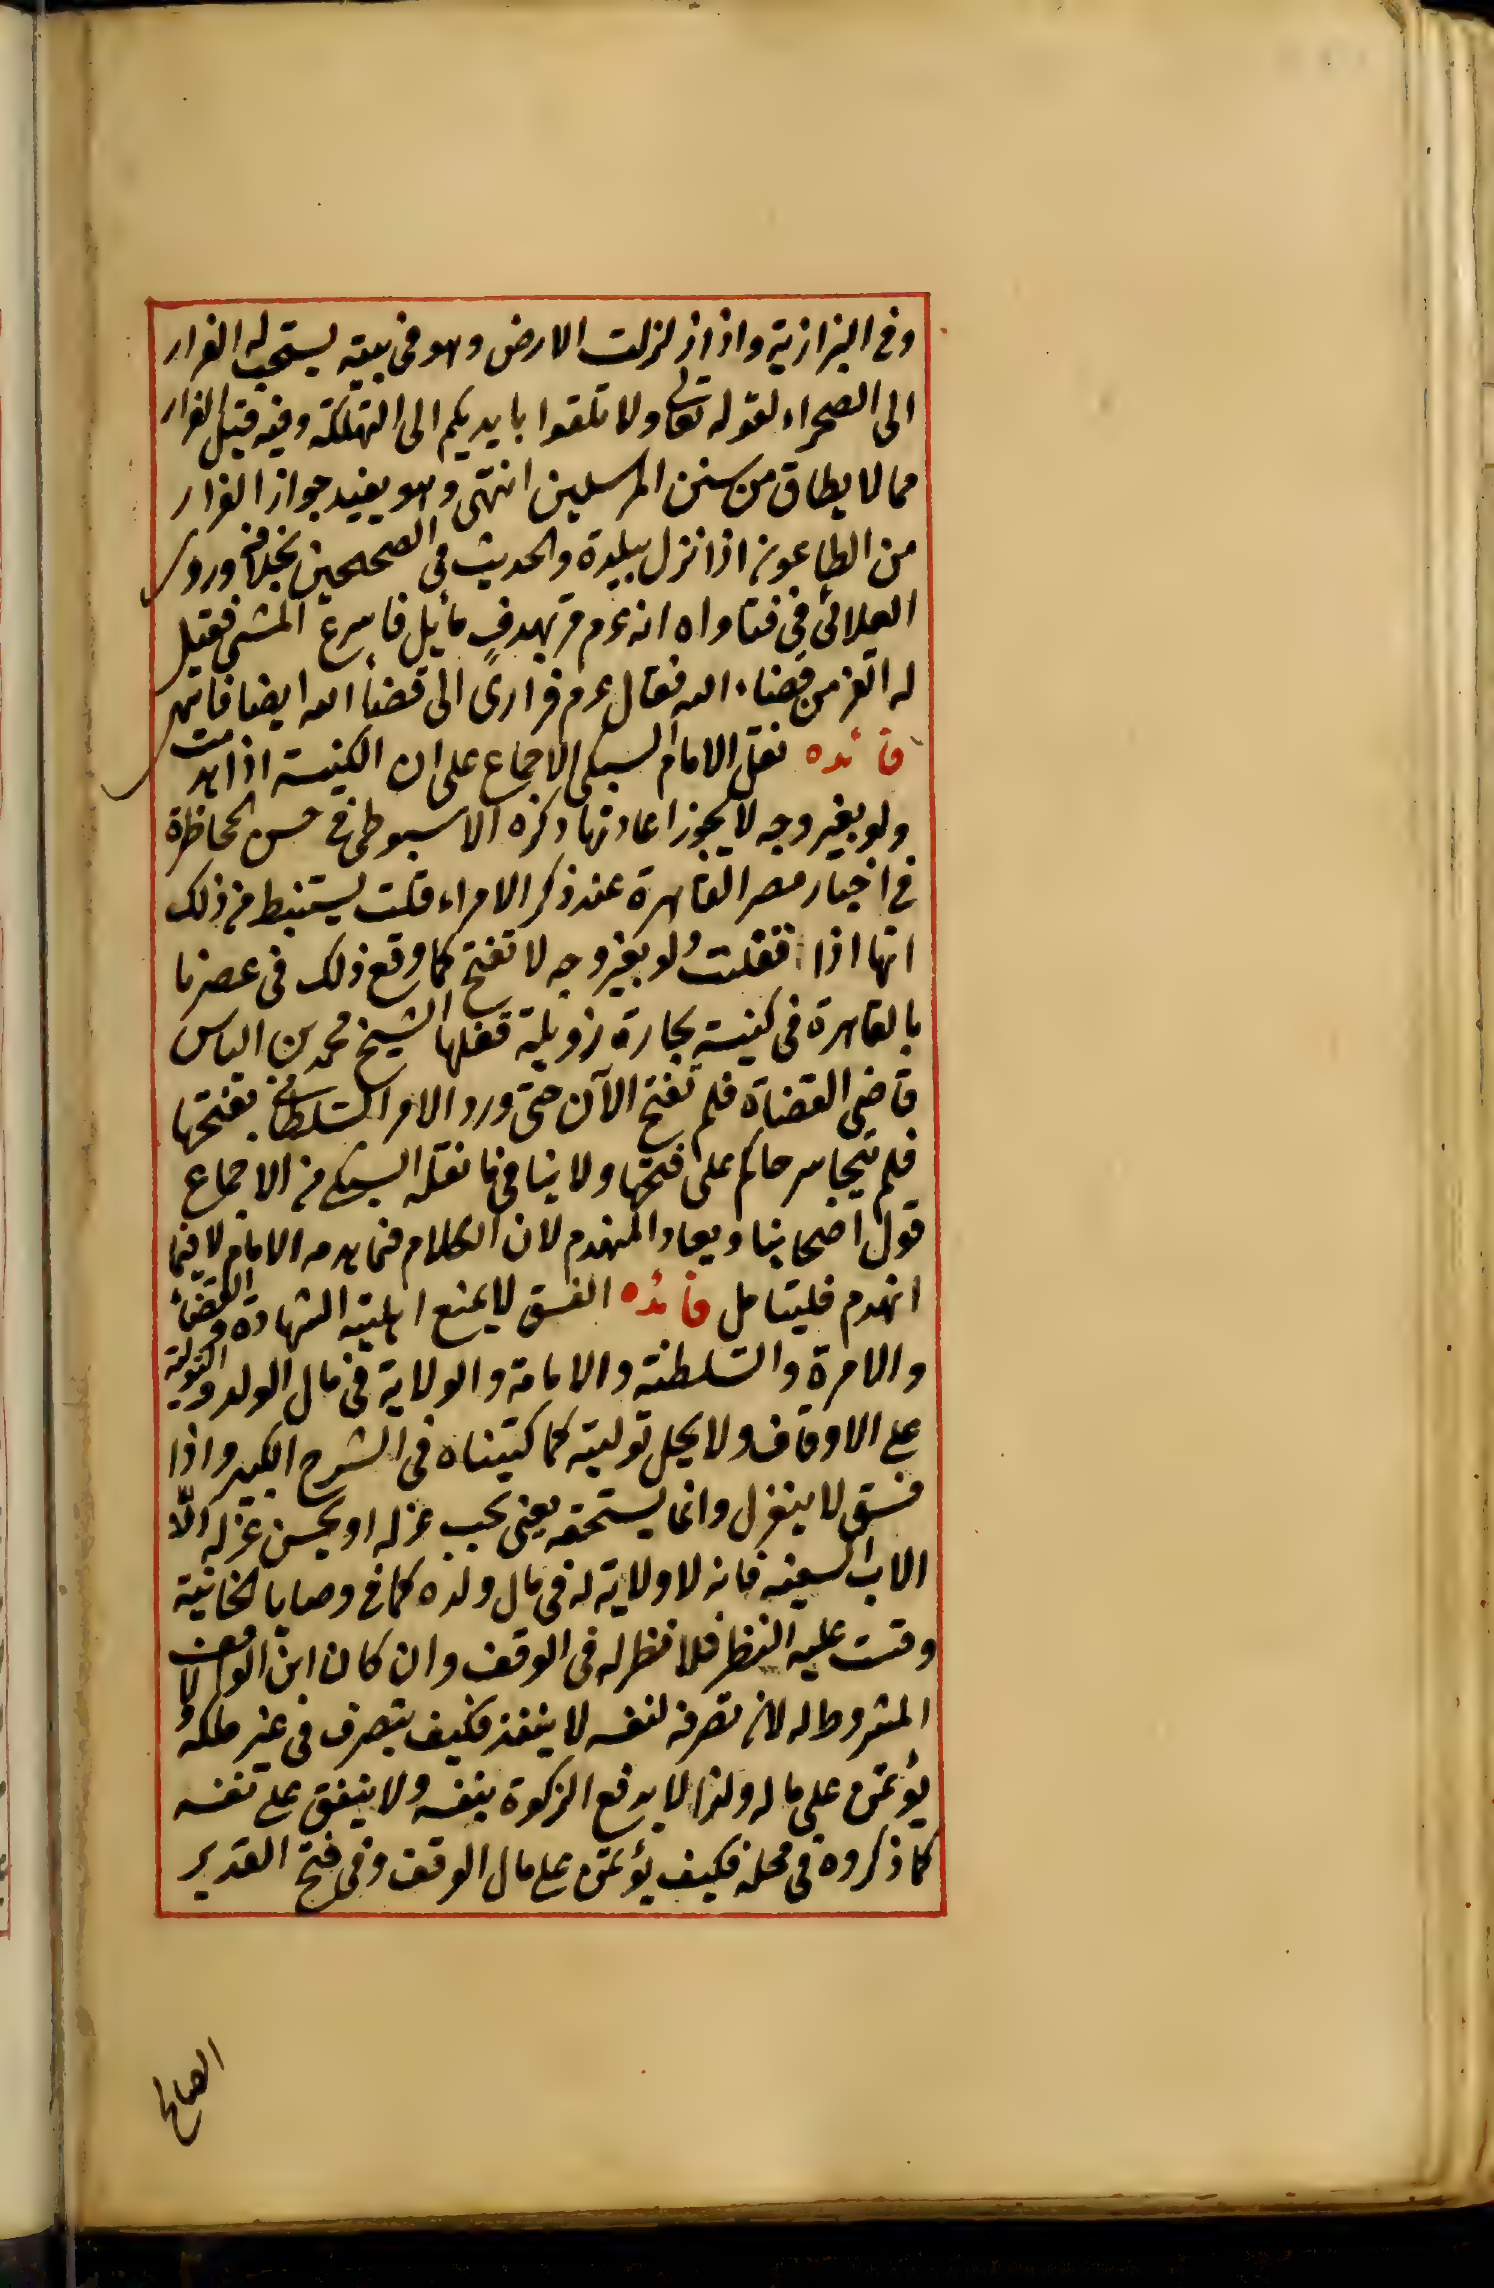 وفي البزازية واذا زلزلت الارض وهو في بيته يستحب له الفرار
الى الصحراء لقوله تعالى ولا تلقوا بايديكم الى التهلكة وفيه قيل الفرار
مما لا يطاق من سنن المرسلين انتهى وهو يفيد جواز الفرار
من الطاعون اذا نزل ببلدة والحديث في الصحيحين بخلافه وروى
العلائي في فتاواه انه عم مر بهدف مائل فاسرع المشي فقيل
له اتفر من قضاء الله فقال عم فراري الى قضاء الله ايضا فائدة
فائده نقل الامام السبكي الاجماع على ان الكنيسة اذا هدمت
ولو بغير وجه لا يجوز اعادتها ذكره الاسيوطي في حسن المحاظرة
في اخبار مصر القاهرة عند ذكر الامراء قلت يستنبط من ذلك
انها اذا قفلت ولو بغير وجه لا تفتح كما وقع ذلك في عصرنا
بالقاهرة في كنيسة بحارة زويلة قفلها الشيخ محمد بن الياس
قاضي القضاة فلم تفتح الآن حتى ورد الامر السلطاني بفتحها
فلم يتجاسر حاكم على فتحها ولا ينافي ما نقله السبكي من الاجماع
قول اصحابنا ويعاد المنهدم لان الكلام فيما هدمه الامام لا فيما
انهدم فليتامل فائده الفسق لا يمنع اهلية الشهادة والقضاء
والامرة والسلطنة والامامة والولاية في مال الولد والتولية
على الاوقاف ولا يحل توليته كما كتبناه في الشرح الكبير واذا
فسق لا ينعزل وانما يستحقه يعني يجب عزله او يحسن عزله الّا
الاب السفيه فانه لا ولاية له في مال ولده كما في وصايا الخانية
وقست عليه النظر فلا نظر له في الوقف وان كان ابن الواقف
المشروط له لان تصرفه لنفسه لا ينفذ فكيف يتصرف في غير ملكه ولا
يؤتمن على ماله ولذا لا يدفع الزكوة بنفسه ولا ينفق على نفسه
كما ذكروه في محله فكيف يؤتمن على مال الوقف وفي فتح القدير
الصالح